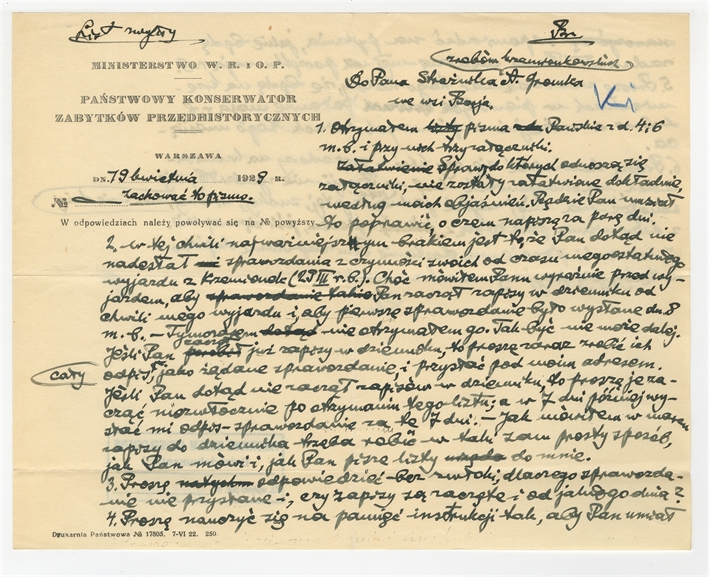 List zwykły
Br.
MINISTERSTWO W. R. i O. P.
PAŃSTWOWY KONSERWATOR
ZABYTKÓW PRZEDHISTORYCZNYCH
WARSZAWA
DN. 19 kwietnia 1929 R.
№ zachować to pismo.
W odpowiedziach należy powoływać się na № powyższy.
zrębów krzemionkowskich
Do Pana Strażnika A. Gromka
we wsi
1. Otrzymałem listy pisma Pańskie z d. 4 i 6
m. b. i przy nich trzy załączniki.
Załatwienie spraw do których odnoszą się
załączniki, nie zostały załatwione dokładnie,
według moich objaśnień. Będzie Pan musiał
to poprawić, o czem napiszę za parę dni.
2. W tej chwili najważniejszym brakiem jest to, że Pan dotąd nie
nadesłał mi sprawozdania z czynności swoich od czasu mego ostatniego
wyjazdu z Krzemionek (29 III r. b.). Choć mówiłem Panu wyraźnie przed wy-
jazdem, aby sprawozdanie takie Pan zaczął zapisy w dzienniku od
chwili mego wyjazdu i, aby pierwsze sprawozdanie było wysłane dn. 8
m. b. – Tymczasem dotąd nie otrzymałem go. Tak być nie może dalej.
Jeśli Pan zaczął już zapisy w dzienniku, to proszę zaraz zrobić ich
cały
odpis, jako żądane sprawozdanie, i przysłać pod moim adresem.
Jeśli Pan dotąd nie zaczął zapisów w dzienniku, to proszę je za-
cząć niezwłocznie po otrzymaniu tego listu; a w 7 dni później wy-
słać mi odpis-sprawozdanie za te 7 dni. – Jak mówiłem w marcu
zapisy do dziennika trzeba robić w taki sam prosty sposób,
jak Pan mówi i, jak Pan pisze listy do mnie.
3. Proszę natychm odpowiedzieć bez zwłoki, dlaczego sprawozda-
nie nie przysłane i, czy zapisy są zaczęte i od jakiego dnia?
4. Proszę nauczyć się na pamięć instrukcji tak, aby Pan umiał
Drukarnia Państwowa № 17805. 7-VI 22. 250.